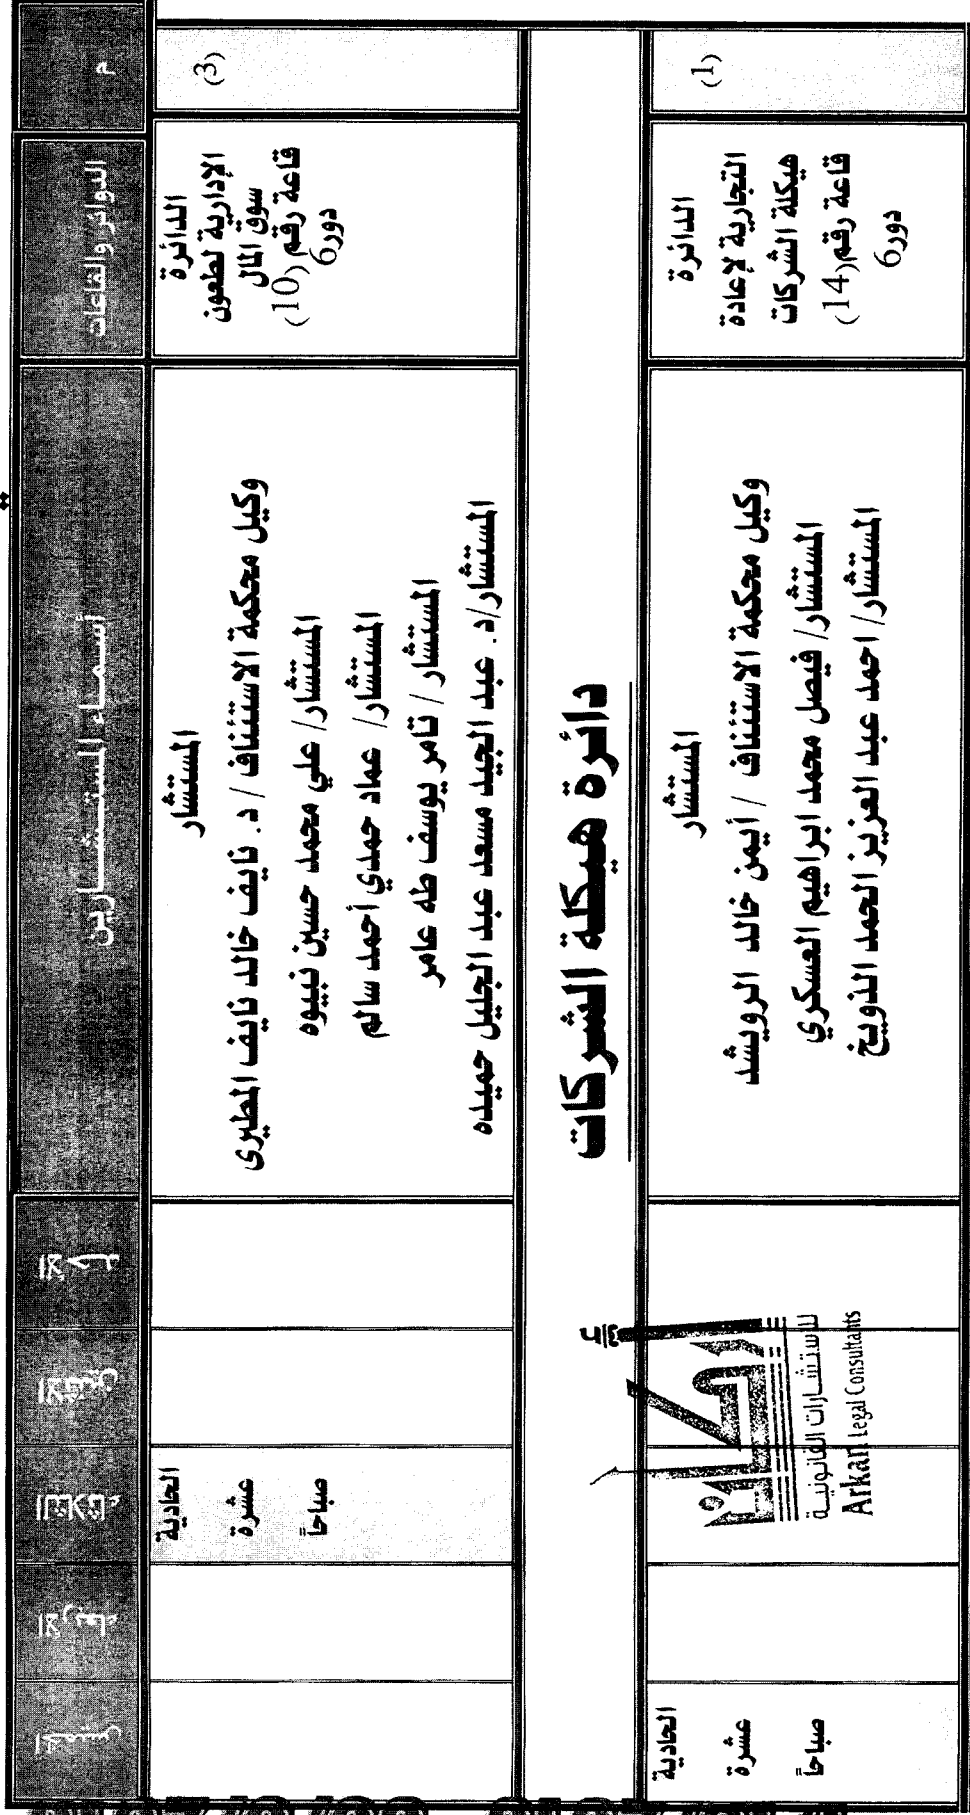 م
الدوائر والقاعات
أسماء المستشارين
الأحد
الاثنين
الثلاثاء
الأربعاء
الخميس
(3)
الدائرة
الإدارية لطعون
سوق المال
قاعة رقم (10)
دور6
المستشار
وكيل محكمة الاستئناف / د. نايف خالد نايف المطيرى
المستشار/ علي محمد حسين نبيوه
المستشار/ عماد حمدي أحمد سالم
المستشار / تامر يوسف طه عامر
المستشار/د. عبد الجيد مسعد عبد الجليل حميده
الحادية
عشرة
صباحاً
دائرة هيكلة الشركات
(1)
الدائرة
التجارية لإعادة
هيكلة الشركات
قاعة رقم(14)
دور6
المستشار
وكيل محكمة الاستئناف / أيمن خالد الرويشد
المستشار/ فيصل محمد ابراهيم العسكري
المستشار/ احمد عبد العزيز الحمد الذويخ
الحادية
عشرة
صباحاً
أركان
للاستشارات القانونية
Arkan Legal Consultants